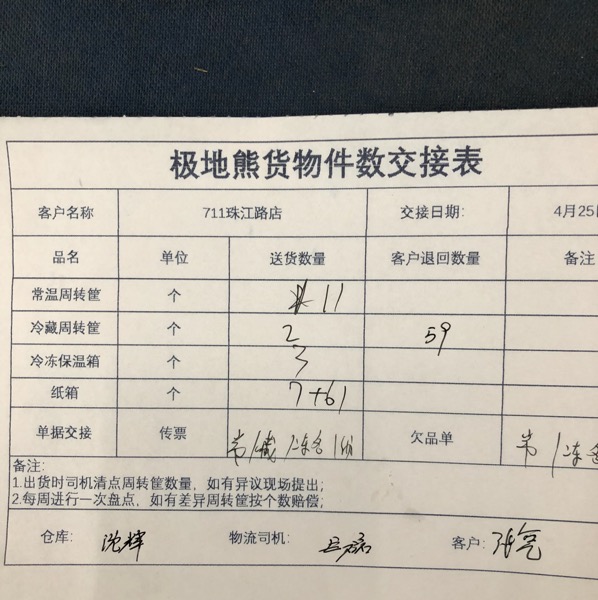 极地熊货物件数交接表
客户名称 711珠江路店 交接日期: 4月25日
品名 单位 送货数量 客户退回数量 备注
常温周转筐 个 11
冷藏周转筐 个 2 59
冷冻保温箱 个 3
纸箱 个 7+61
单据交接 传票 欠品单
备注:
1.出货时司机清点周转筐数量，如有异议现场提出;
2.每周进行一次盘点，如有差异周转筐按个数赔偿;
仓库: 沈辉 物流司机: 客户: